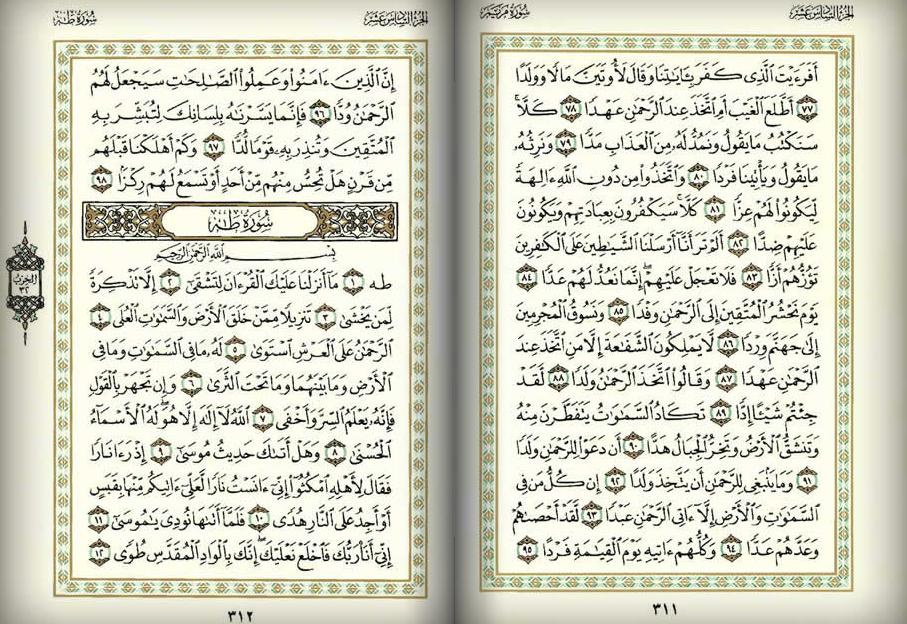 الجزء السادس عشر
سورة مريم
أفرءيت الذى كفر بـٔايتنا وقال لأوتين مالا وولدا
٧٧ أطلع الغيب أم اتخذ عند الرحمن عهدا ٧٨ كلا
سنكتب ما يقول ونمد له من العذاب مدا ٧٩ ونرثه
ما يقول ويأتينا فردا ٨٠ واتخذوا من دون الله ءالهة
ليكونوا لهم عزا ٨١ كلا سيكفرون بعبادتهم ويكونون
عليهم ضدا ٨٢ ألم تر أنا أرسلنا الشيطين على الكفرين
تؤزهم أزا ٨٣ فلا تعجل عليهم إنما نعد لهم عدا ٨٤
يوم نحشر المتقين إلى الرحمن وفدا ٨٥ ونسوق المجرمين
إلى جهنم وردا ٨٦ لا يملكون الشفعة إلا من اتخذ عند
الرحمن عهدا ٨٧ وقالوا اتخذ الرحمن ولدا ٨٨ لقد
جئتم شيـٔا إدا ٨٩ تكاد السموت يتفطرن منه
وتنشق الأرض وتخر الجبال هدا ٩٠ أن دعوا للرحمن ولدا
٩١ وما ينبغى للرحمن أن يتخذ ولدا ٩٢ إن كل من فى
السموت والأرض إلا ءاتى الرحمن عبدا ٩٣ لقد أحصىهم
وعدهم عدا ٩٤ وكلهم ءاتيه يوم القيمة فردا ٩٥
٣١١
الجزء السادس عشر
سورة طه
إن الذين ءامنوا وعملوا الصلحت سيجعل لهم
الرحمن ودا ٩٦ فإنما يسرنه بلسانك لتبشر به
المتقين وتنذر به قوما لدا ٩٧ وكم أهلكنا قبلهم
من قرن هل تحس منهم من أحد أو تسمع لهم ركزا ٩٨
سورة طه
بسم الله الرحمن الرحيم
طه ١ ما أنزلنا عليك القرءان لتشقى ٢ إلا تذكرة
لمن يخشى ٣ تنزيلا ممن خلق الأرض والسموت العلى ٤
الرحمن على العرش استوى ٥ له ما فى السموت وما فى
الأرض وما بينهما وما تحت الثرى ٦ وإن تجهر بالقول
فإنه يعلم السر وأخفى ٧ الله لا إله إلا هو له الأسماء
الحسنى ٨ وهل أتىك حديث موسى ٩ إذ رءا نارا
فقال لأهله امكثوا إنى ءانست نارا لعلى ءاتيكم منها بقبس
أو أجد على النار هدى ١٠ فلما أتىها نودى يموسى ١١
إنى أنا ربك فاخلع نعليك إنك بالواد المقدس طوى ١٢
٣١٢
الحزب
٣٢